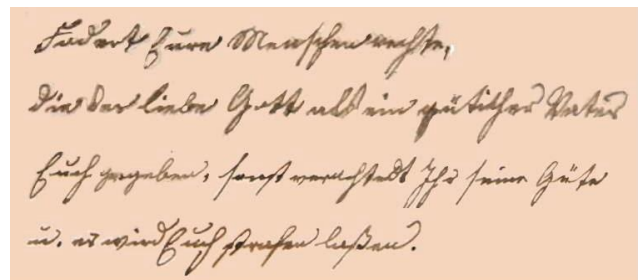 Fodert Eure Menschenrechte,
die der liebe Gott als ein gütither Vater
Euch gegeben, sonst verachtedt Ihr seine Güte
u. er wird Euch strafen laßen.